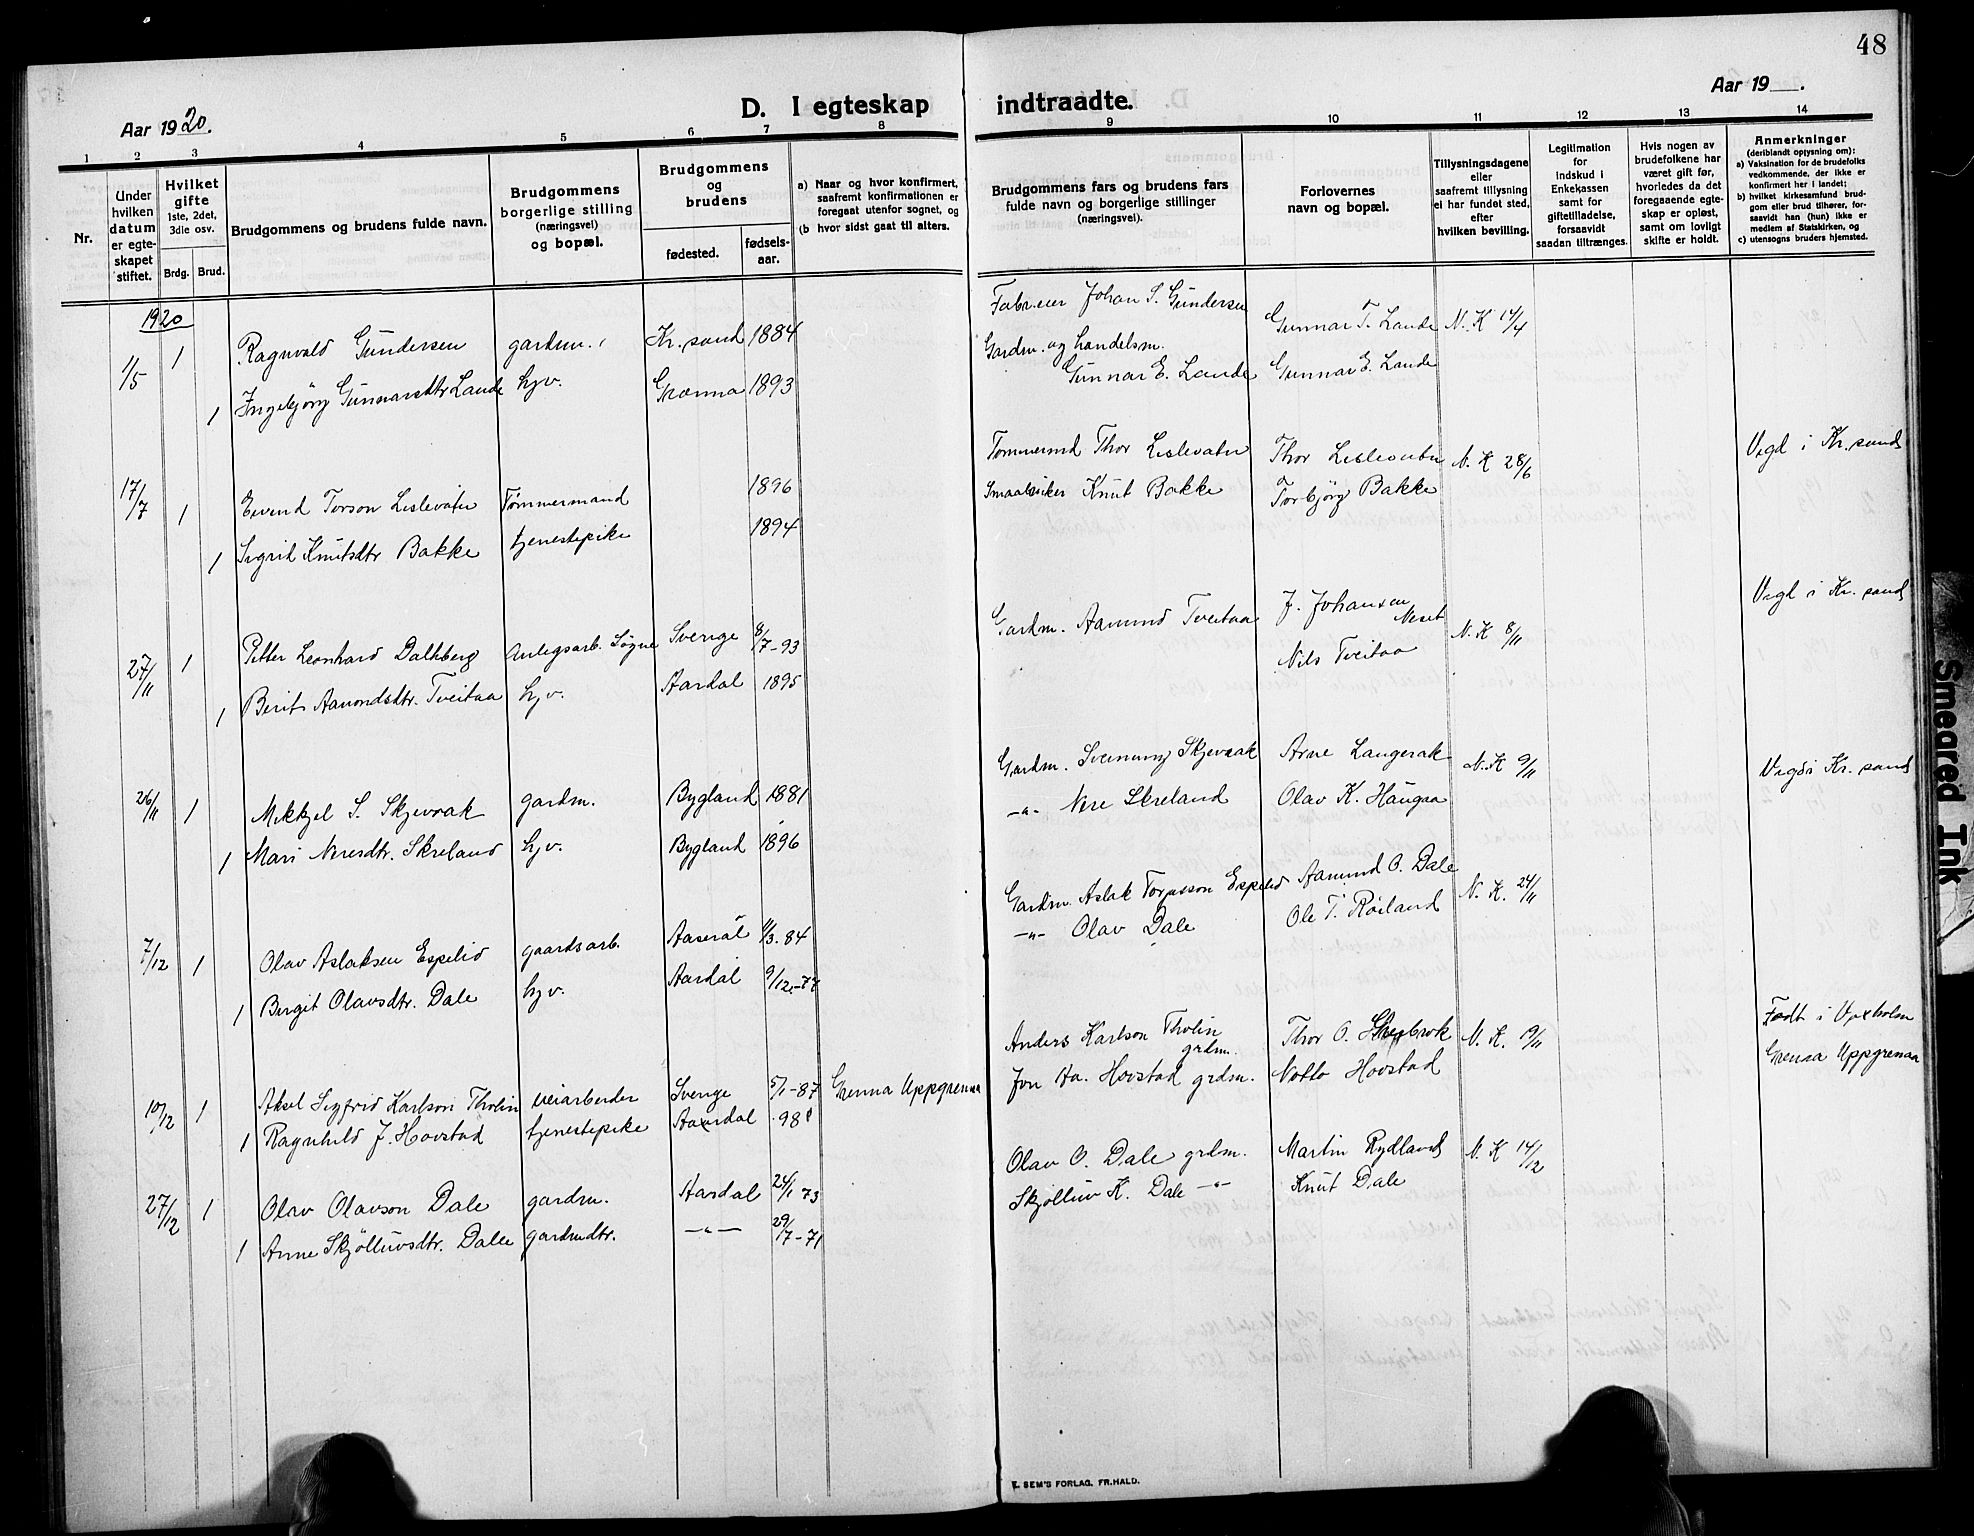 48
Aar 1920.
D. I egteskap indtraadte.
Aar 19    .
1 2 3 4 5 6 7 8 9 10 11 12 13 14
Nr.
Under hvilken datum er egteskapet stiftet.
Hvilket gifte 1ste, 2det, 3die osv.
Brdg. Brud.
Brudgommens og brudens fulde navn.
Brudgommens borgerlige stilling (næringsvei) og bopæl.
Brudgommens og brudens
fødested. fødselsaar.
a) Naar og hvor konfirmert, saafremt konfirmationen er foregaat utenfor sognet, og
(b hvor sidst gaat til alters.
Brudgommens fars og brudens fars fulde navn og borgerlige stillinger (næringsvei).
Forlovernes navn og bopæl.
Tillysningsdagene eller saafremt tillysning ei har fundet sted, efter hvilken bevilling.
Legitimation for indskud i Enkekassen samt for giftetilladelse, forsaavidt saadan tiltrænges.
Hvis nogen av brudefolkene har været gift før, hvorledes da det foregaaende egteskap er opløst, samt om lovligt skifte er holdt.
Anmerkninger (deriblandt oplysning om):
a) Vaksination for de brudefolks vedkommende, der ikke er konfirmert her i landet;
b) hvilket kirkesamfund brudgom eller brud tilhører, forsaavidt han (hun) ikke er medlem af Statskirken, og
c) utensogns bruders hjemsted.
1920
1/5 1 Ragnvald Gundersen gardm. Kr.sand 1884 Fabr.eier Johan S. Gundersen Gunnar T. Lande N. K 14/4
1 Ingebjörg Gunnarsdtr Lande hjv. Grænna 1893 Gardm. og handelsm. Gunnar E. Lande Gunnar E. Lande
17/7 1 Eivend Torson Lislevatn Tømmermand 1896 Tømmermd Thor Lislevatn Thor Lislevatn N. K 28/6 Vigd i Kr.sand
1 Sigrid Knutsdtr Bakke tjenestepike 1894 Smaabruker Knut Bakke Torbjörg Bakke
27/11 1 Petter Leonhard Dalhberg Anlegsarb. Søgne Sverige 8/7-93 Gardm. Aamund Tveitaa J. Johansen Neset N. K 8/11 Vigd i Kr. sand
1 Berit Aamondsdtr. Tveitaa hjv. Aardal 1895 Nils Tveitaa
26/11 1 Mikkjel S. Skjevrak gardm. Bygland 1881 Gardm. Sveinung Skjevrak Arne Langerak N. K 9/11 Vigd i Kr. sand
1 Mari Neresdtr. Skreland hjv. Bygland 1896 -"- Nere Skreland Olav K. Haugaa
7/12 1 Olav Aslaksen Espelid gaardsarb. Aaseral 11/3.84 Gardm. Aslak Torjusson Espelid Aamund O. Dale N. K. 24/11
1 Bergit Olavsdtr. Dale hjv. Aardal 9/12.-77 -"- Olav Dale Ole T. Røiland
10/12 1 Aksel Sigfrid Karlson Tholin veiarbeider Sverige 5/1-87 Grenna Uppgrenna Anders Karlson Tholin grdm. Thor O. N. K. 19/11 Født i
1 Ragnhild J. Hovstad tjenestepike Aardal .98 Jon Aa. Hovstad grdm. Notto Hovstad Grenna Uppgrenna
27/12 1 Olav Olavson Dale gardm. Aardal 24/1 73 Olav O. Dale grdm. Martin Rydland N. K 14/12
1 Anne Skjölluvsdtr. Dale gardmdtr. -"- 29/7-71 Skjölluv K. Dale -"- Knut Dale
E. SEM'S FORLAG, FR.HALD.
Smeared Ink